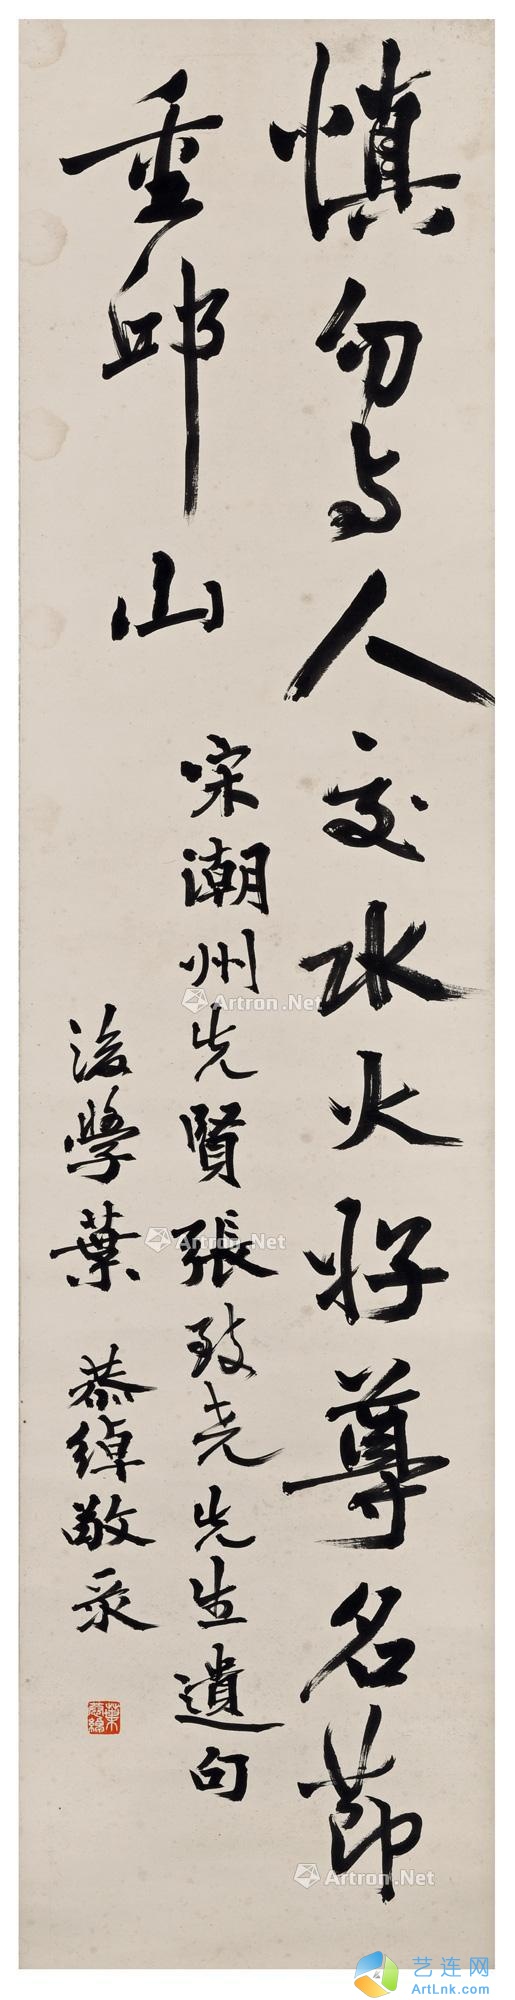 慎勿与人交水火好尊名节
重邱山
宋潮州先賢張致尧先生遺句
後學葉恭綽敬录
葉恭綽
Artron.Net
Artron.Net
Artron.Net
艺连网
ArtLnk.com